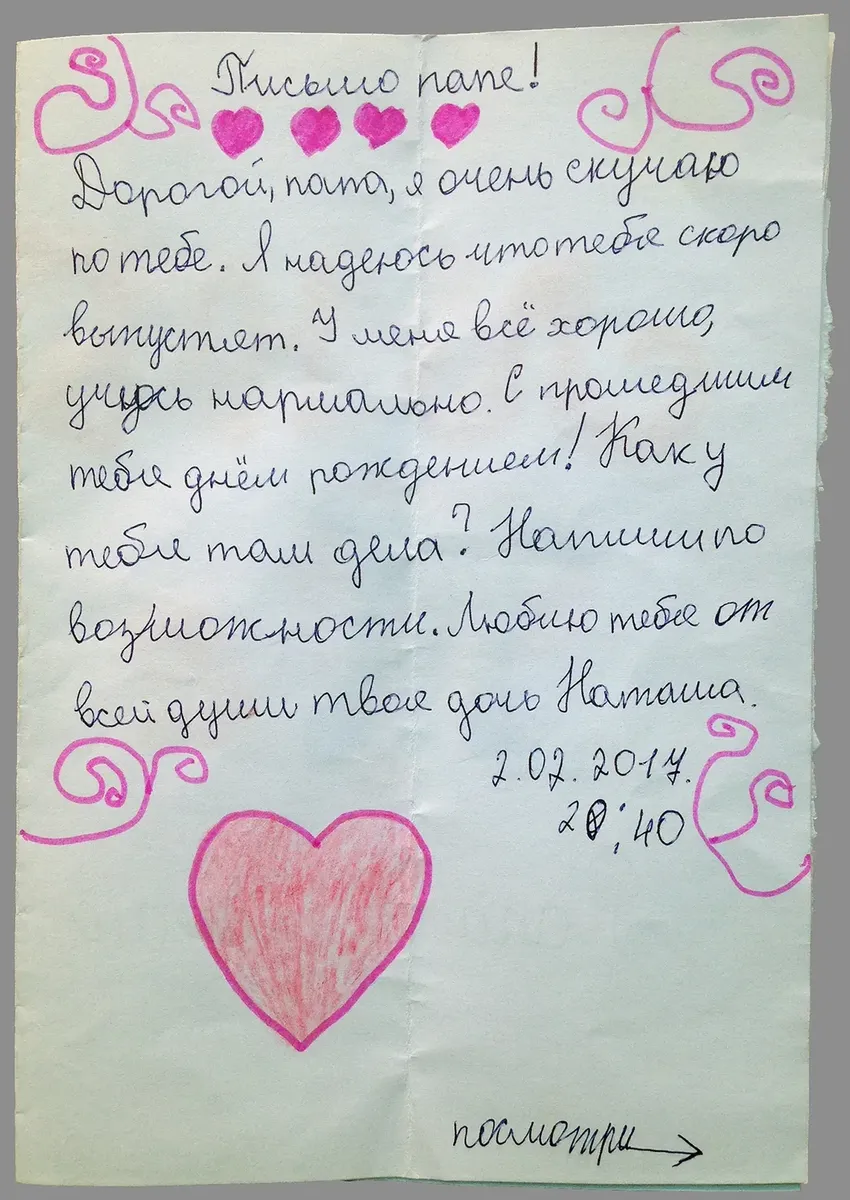 Письмо папе!
Дорогой, папа, я очень скучаю
по тебе. Я надеюсь что тебя скоро
выпустят. У меня всё хорошо,
учусь нармально. С прошедшим
тебя днём рождением! Как у
тебя там дела? Напиши по
возможности. Люблю тебя от
всей души твоя дочь Наташа.
2.02.2017.
20:40
посмотри